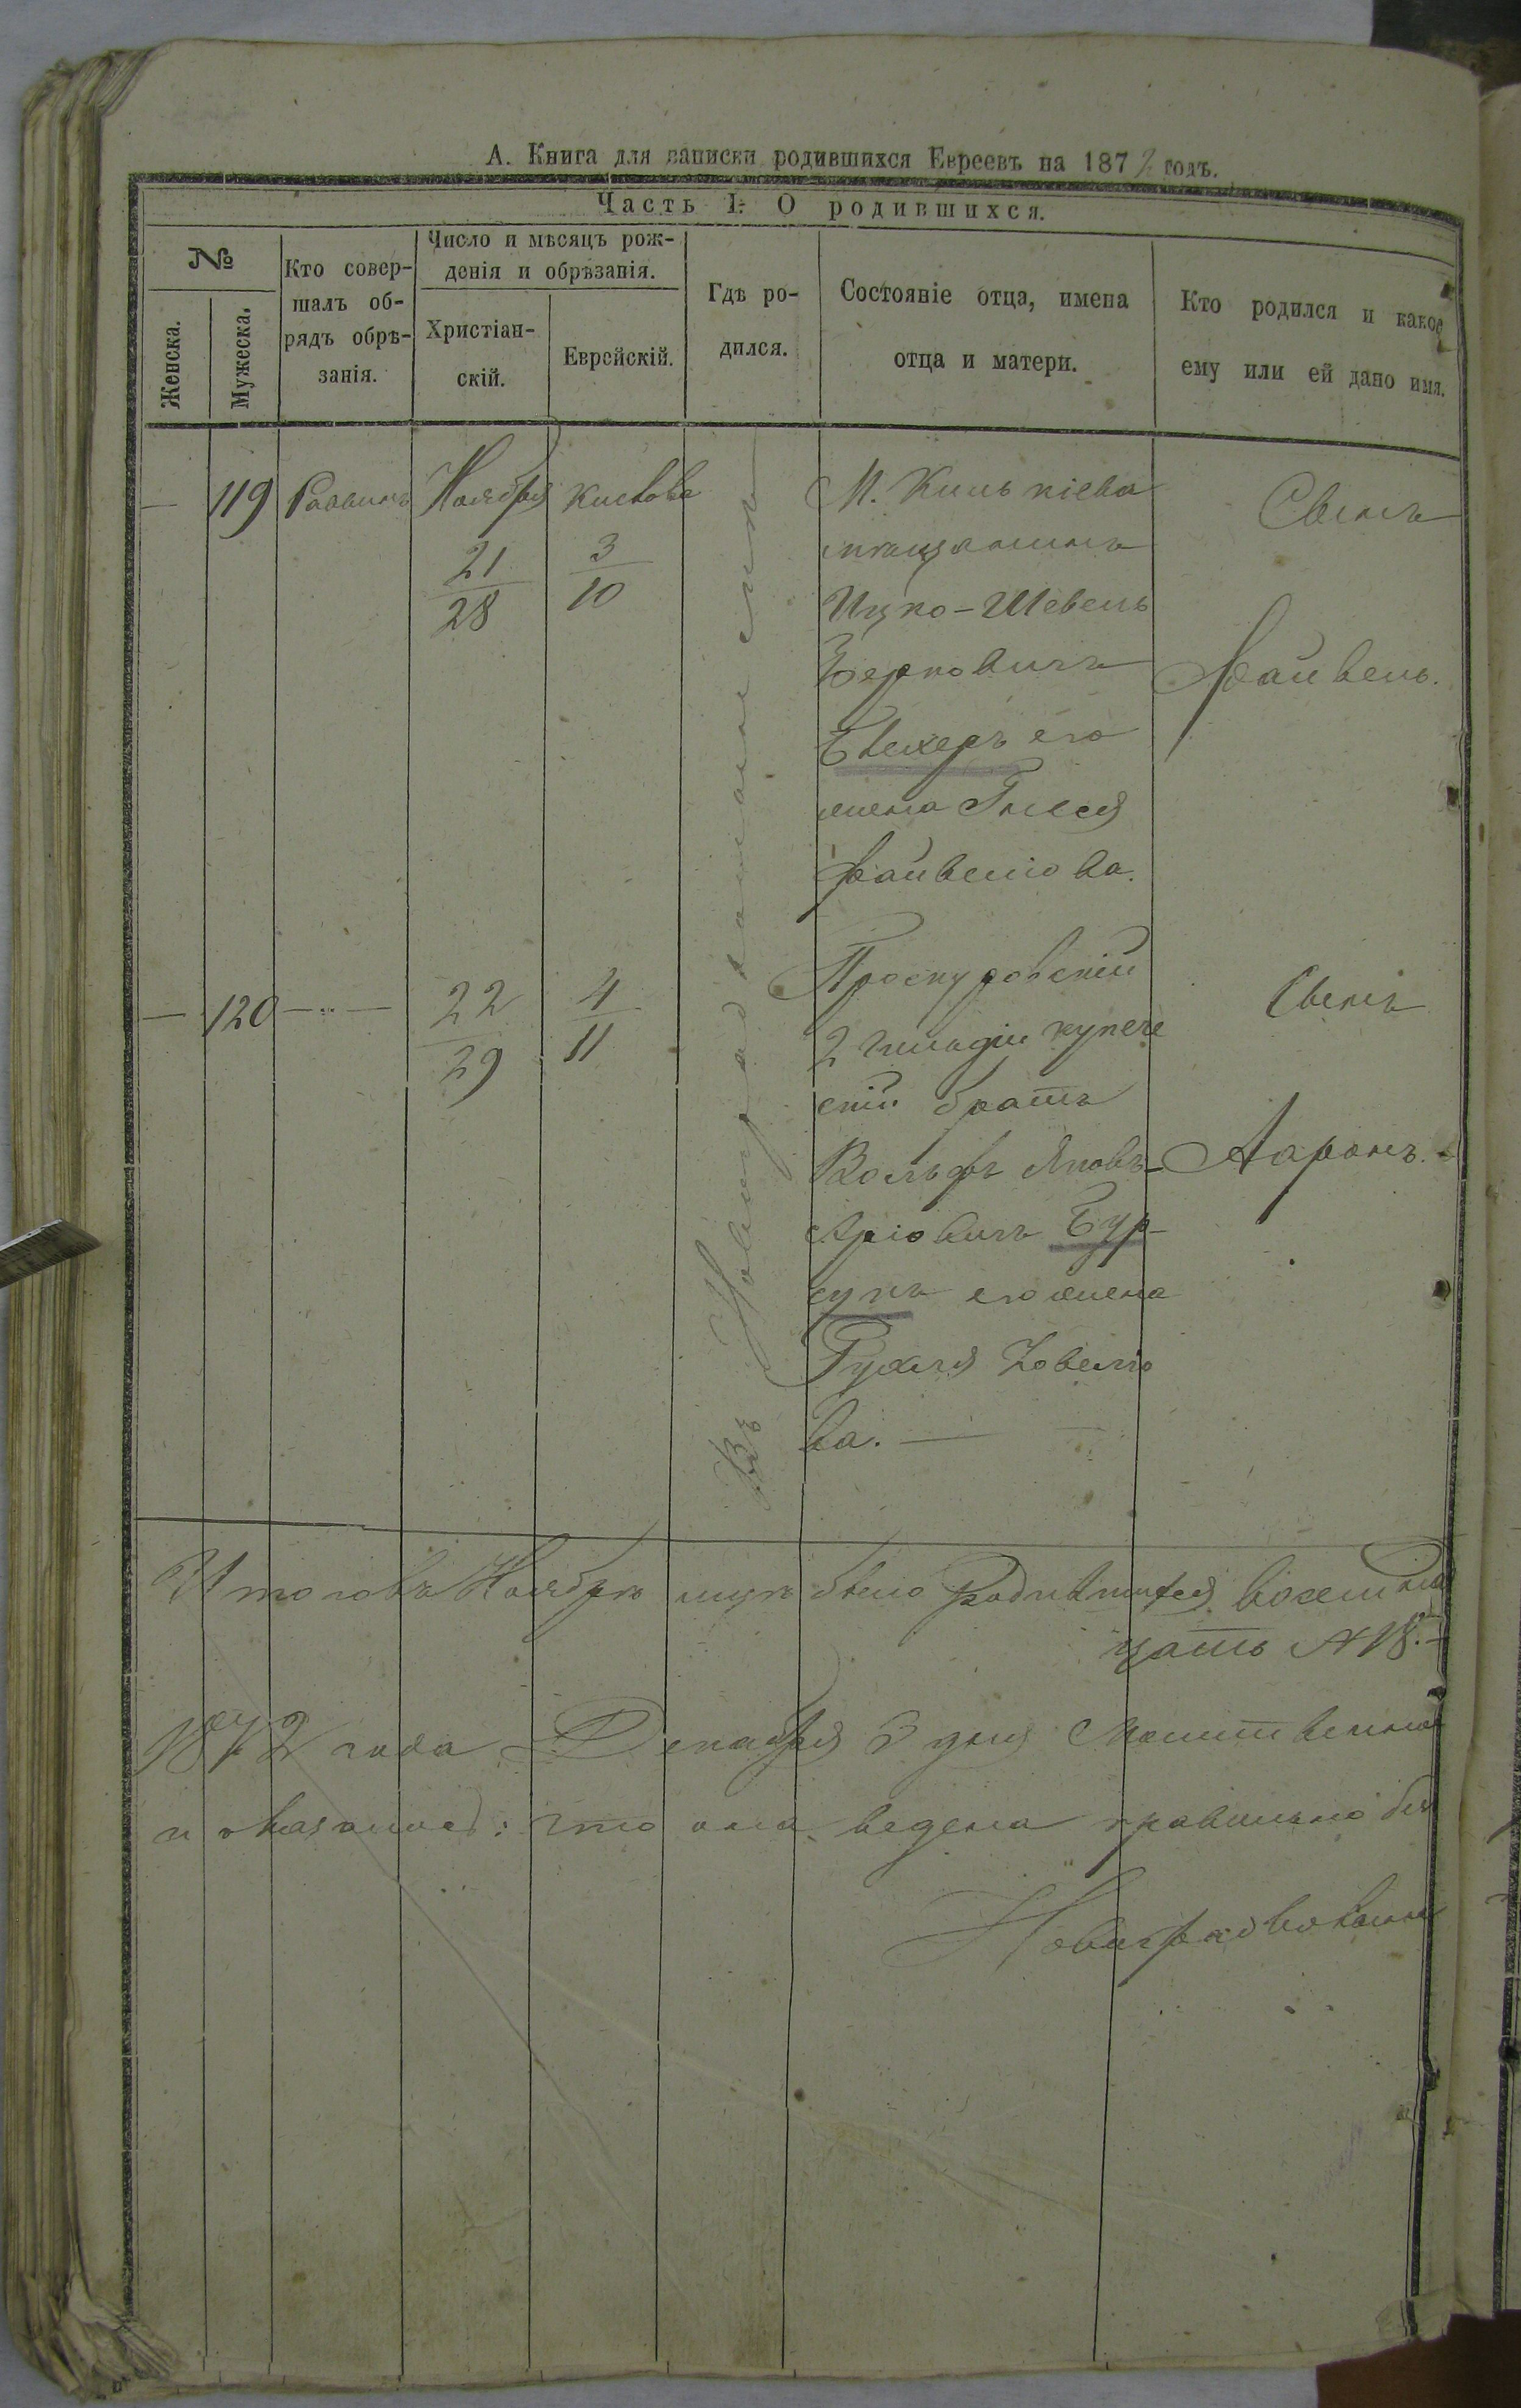 А. Книга для записки родившихся Евреевъ на 1872 годъ.
Часть I. О родившихся.
№
Женска.
Мужеска.
Кто совер-
шалъ об-
рядъ обрѣ-
занія.
Число и мѣсяцъ рож-
денія и обрѣзанія.
Христіан-
скій.
Еврейскій.
Гдѣ ро-
дился.
Состояніе отца, имена
отца и матери.
Кто родился и какое
ему или ей дано имя.
— 119 Раввинъ Ноября
21
28
3
10
М.
мѣщанинъ
Ицко-Шевель
Берковичъ
его
жена
Файвелiова.
Сынъ
Файвель.
— 120 —〃—
22
29
4
11
Проскуровскій
2 гильдіи купече
скій братъ
Вольфъ Яковъ-
Аріовичъ Бур-
сукъ его жена
Рухля Ховеліо
ва. —
Сынъ
Ааронъ.
Въ
Итого въ Ноябрѣ было родившихся восемнад
цать № 18.—
1872 года Декабря 3 дня
и оказалось: что она ведена правильно